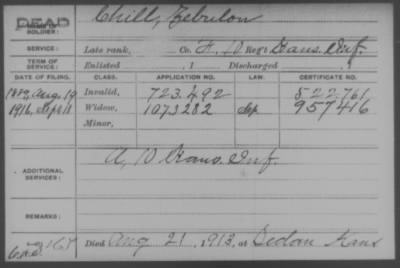 DEAD
NAME OF SOLDIER: Chill, Zebulon
SERVICE: Late rank, Co. F, 10 Reg't Kans. Inf.
TERM OF SERVICE: Enlisted , 1 Discharged , 1
DATE OF FILING. CLASS. APPLICATION NO. LAW. CERTIFICATE NO.
Aug. 19 Invalid, 723.492 522.761
1916, Sept 11 Widow, 1073282 957416
Minor,
ADDITIONAL SERVICES: A, 10 Kans. Inf.
REMARKS:
Died Aug 21, 1913, at Sedan Kans